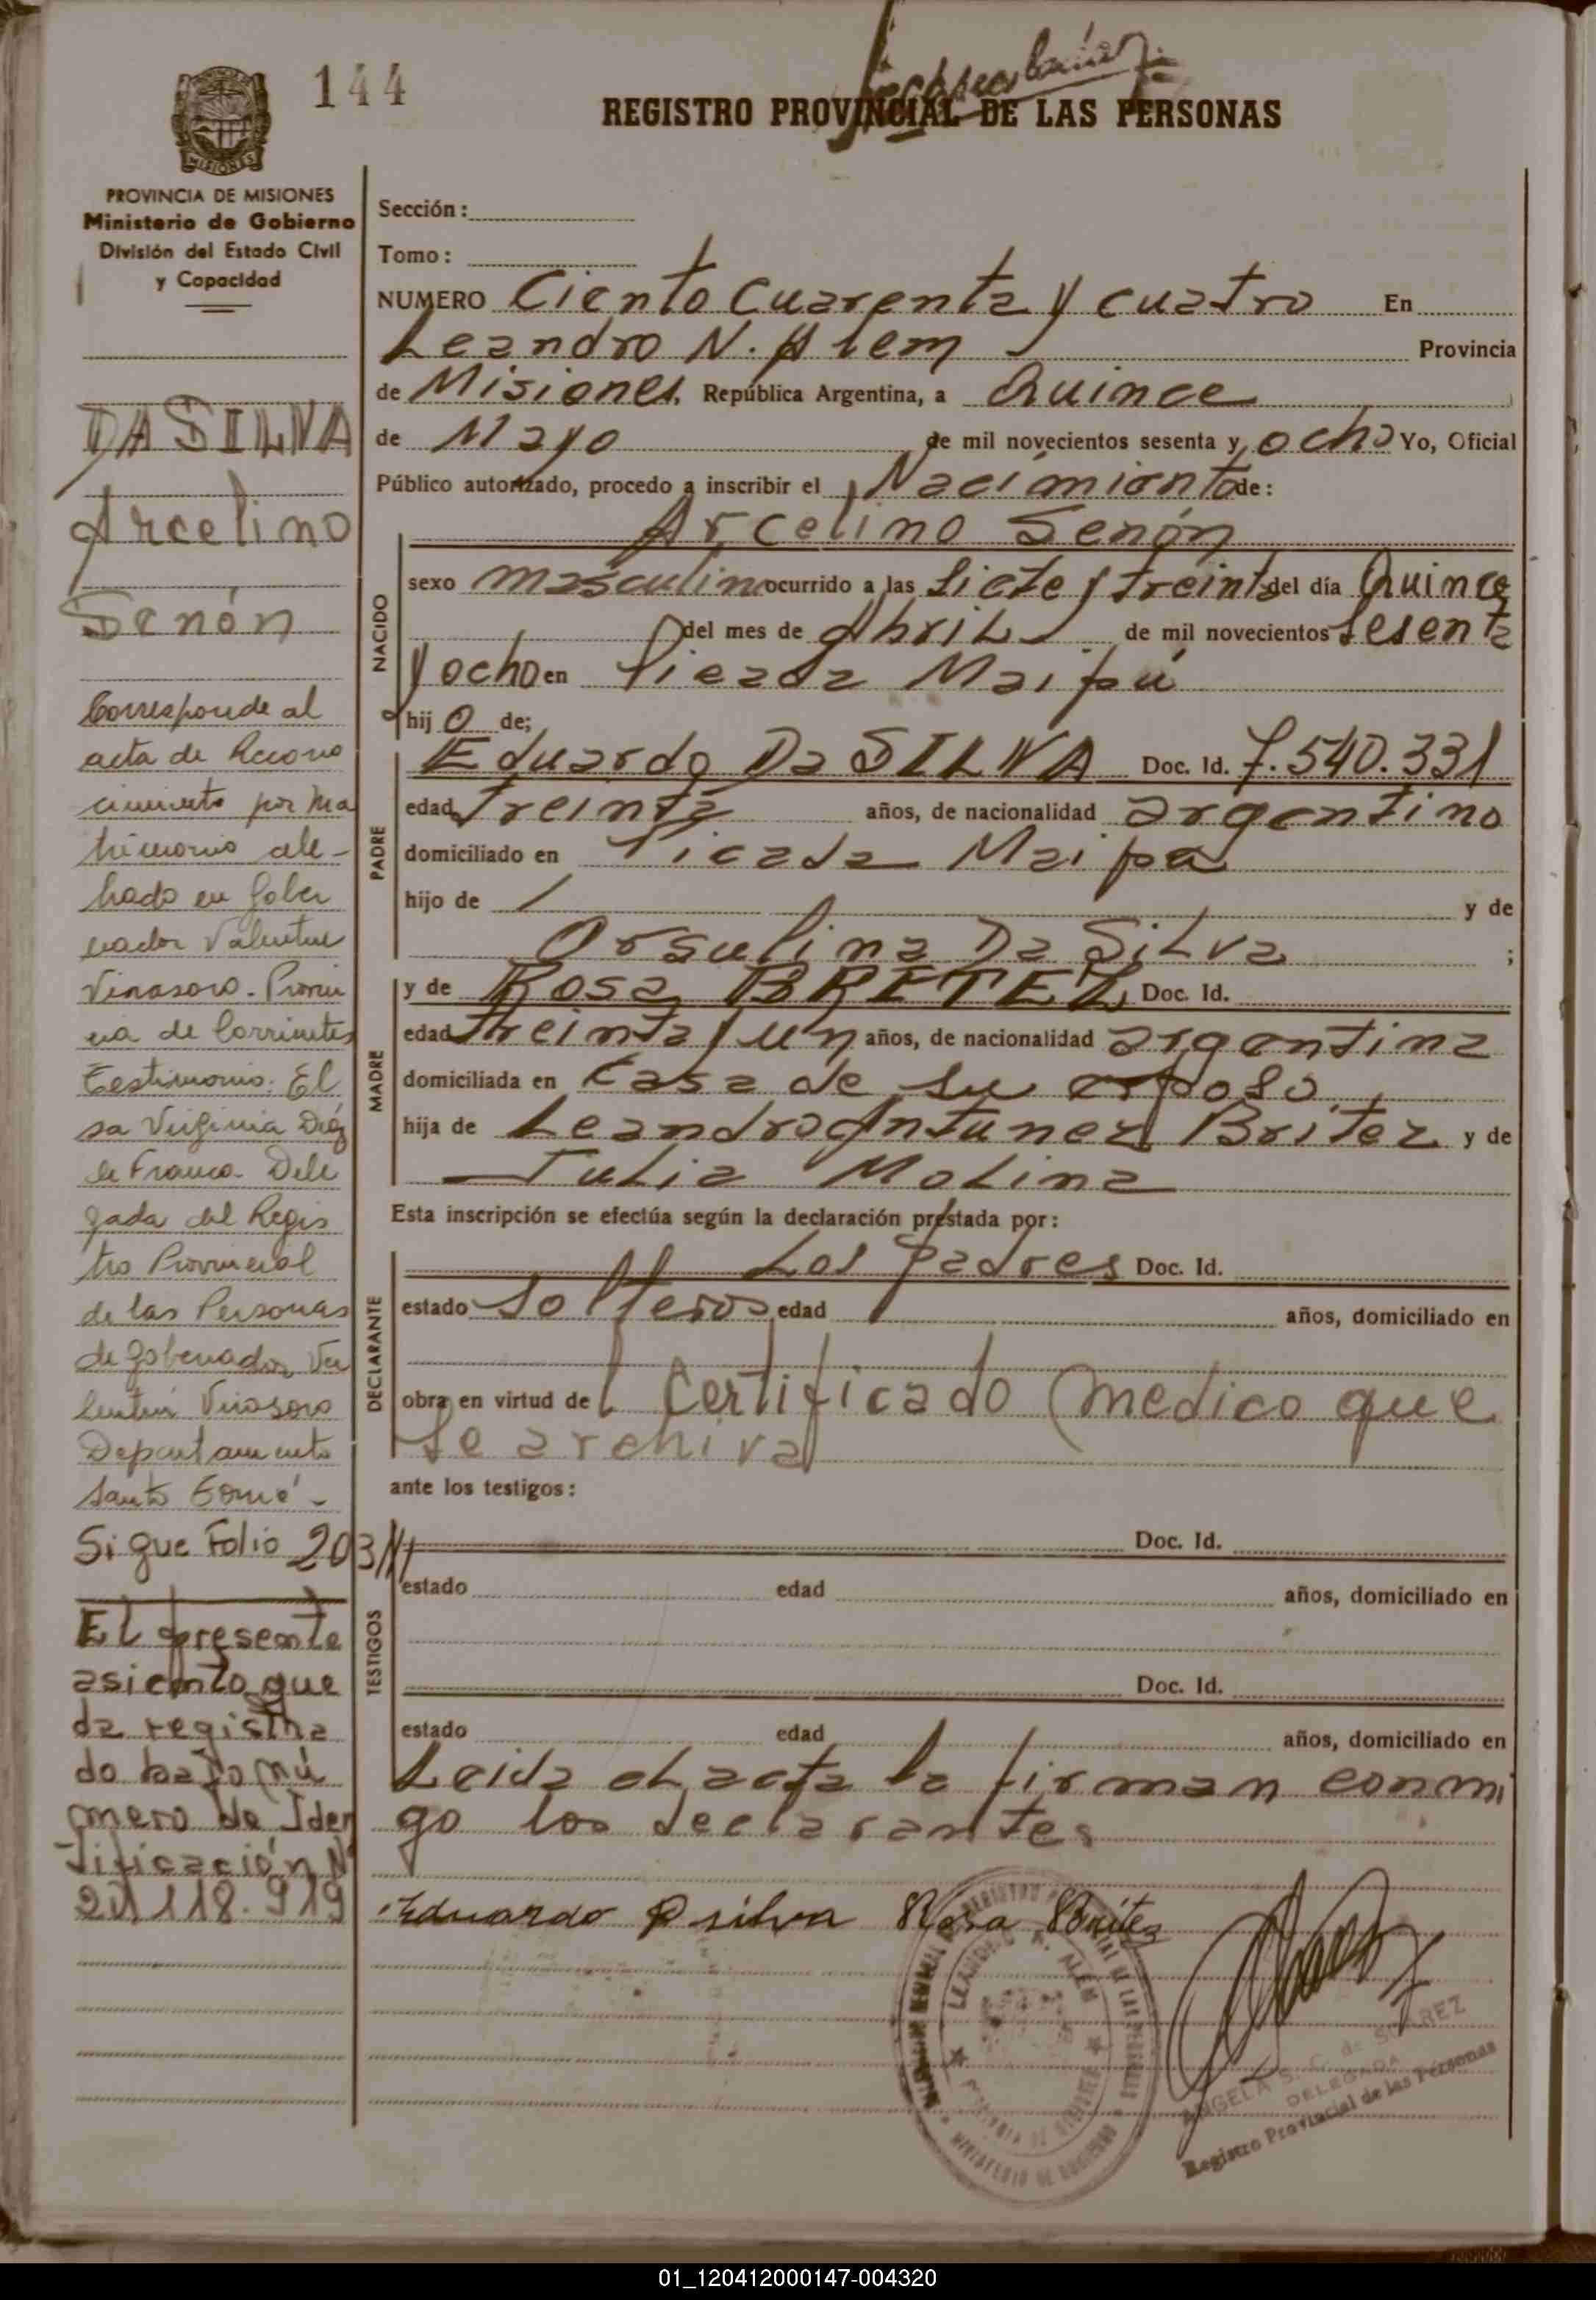 144
REGISTRO PROVINCIAL DE LAS PERSONAS
MISIONES
PROVINCIA DE MISIONES
Ministerio de Gobierno
División del Estado Civil
y Capacidad
DA SILVA
Arcelino
Senón
Corresponde al
acta de Recono
cimiento por Ma
trimonio cele-
brado en Gober
nador Valentin
Virasoro. Provin
cia de Corrientes
Testimonio: El
sa Virginia Diáz
de Franco Dele
gada del Regis
tro Provincial
de las Personas
de Gobernador Va
lentin Virasoro
Departamento
Santo Tomé -
Sigue Folio 203//
El presente
asiento que
da registra
do bajo nú
mero de Iden
tificación Nº
20.118.919
Sección:
Tomo:
NUMERO Ciento Cuarenta y cuatro En
Leandro N. Alem Provincia
de Misiones, República Argentina, a Quince
de Mayo de mil novecientos sesenta y ocho Yo, Oficial
Público autorizado, procedo a inscribir el Nacimiento de:
NACIDO
Arcelino Senón
sexo masculino ocurrido a las Siete y treinta del día Quince
del mes de Abril de mil novecientos Sesenta
y ocho en Picada Maipú
hijo de;
PADRE
Eduardo Da SILVA Doc. Id. 7.540.331
edad treinta años, de nacionalidad argentino
domiciliado en Picada Maipú
hijo de / y de
Orsulina Da Silva ;
MADRE
y de Rosa BRITEZ, Doc. Id.
edad treinta y un años, de nacionalidad argentina
domiciliada en Casa de su esposo
hija de Leandro Antunez Britez y de
Julia Molina
Esta inscripción se efectúa según la declaración prestada por:
DECLARANTE
Los padres Doc. Id.
estado Solteros edad años, domiciliado en
obra en virtud del Certificado medico que
se archiva
ante los testigos:
TESTIGOS
Doc. Id.
estado edad años, domiciliado en
Doc. Id.
estado edad años, domiciliado en
Leida el acta la firman conmi
go los declarantes
Eduardo D silva Rosa Britez
LEANDRO N. ALEM
ANGELA S. C. de SUAREZ
DELEGADA
Registro Provincial de las Personas
01_120412000147-004320